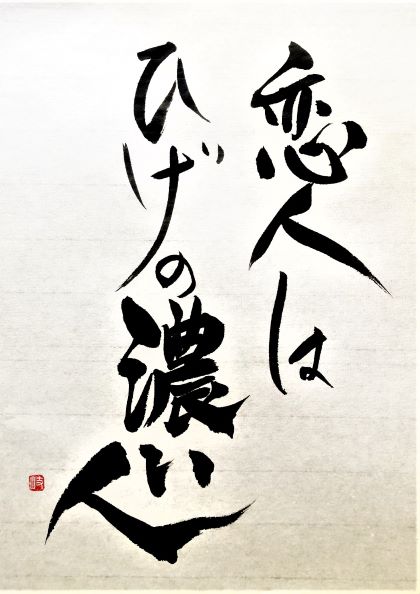 恋人は
ひげの濃い人